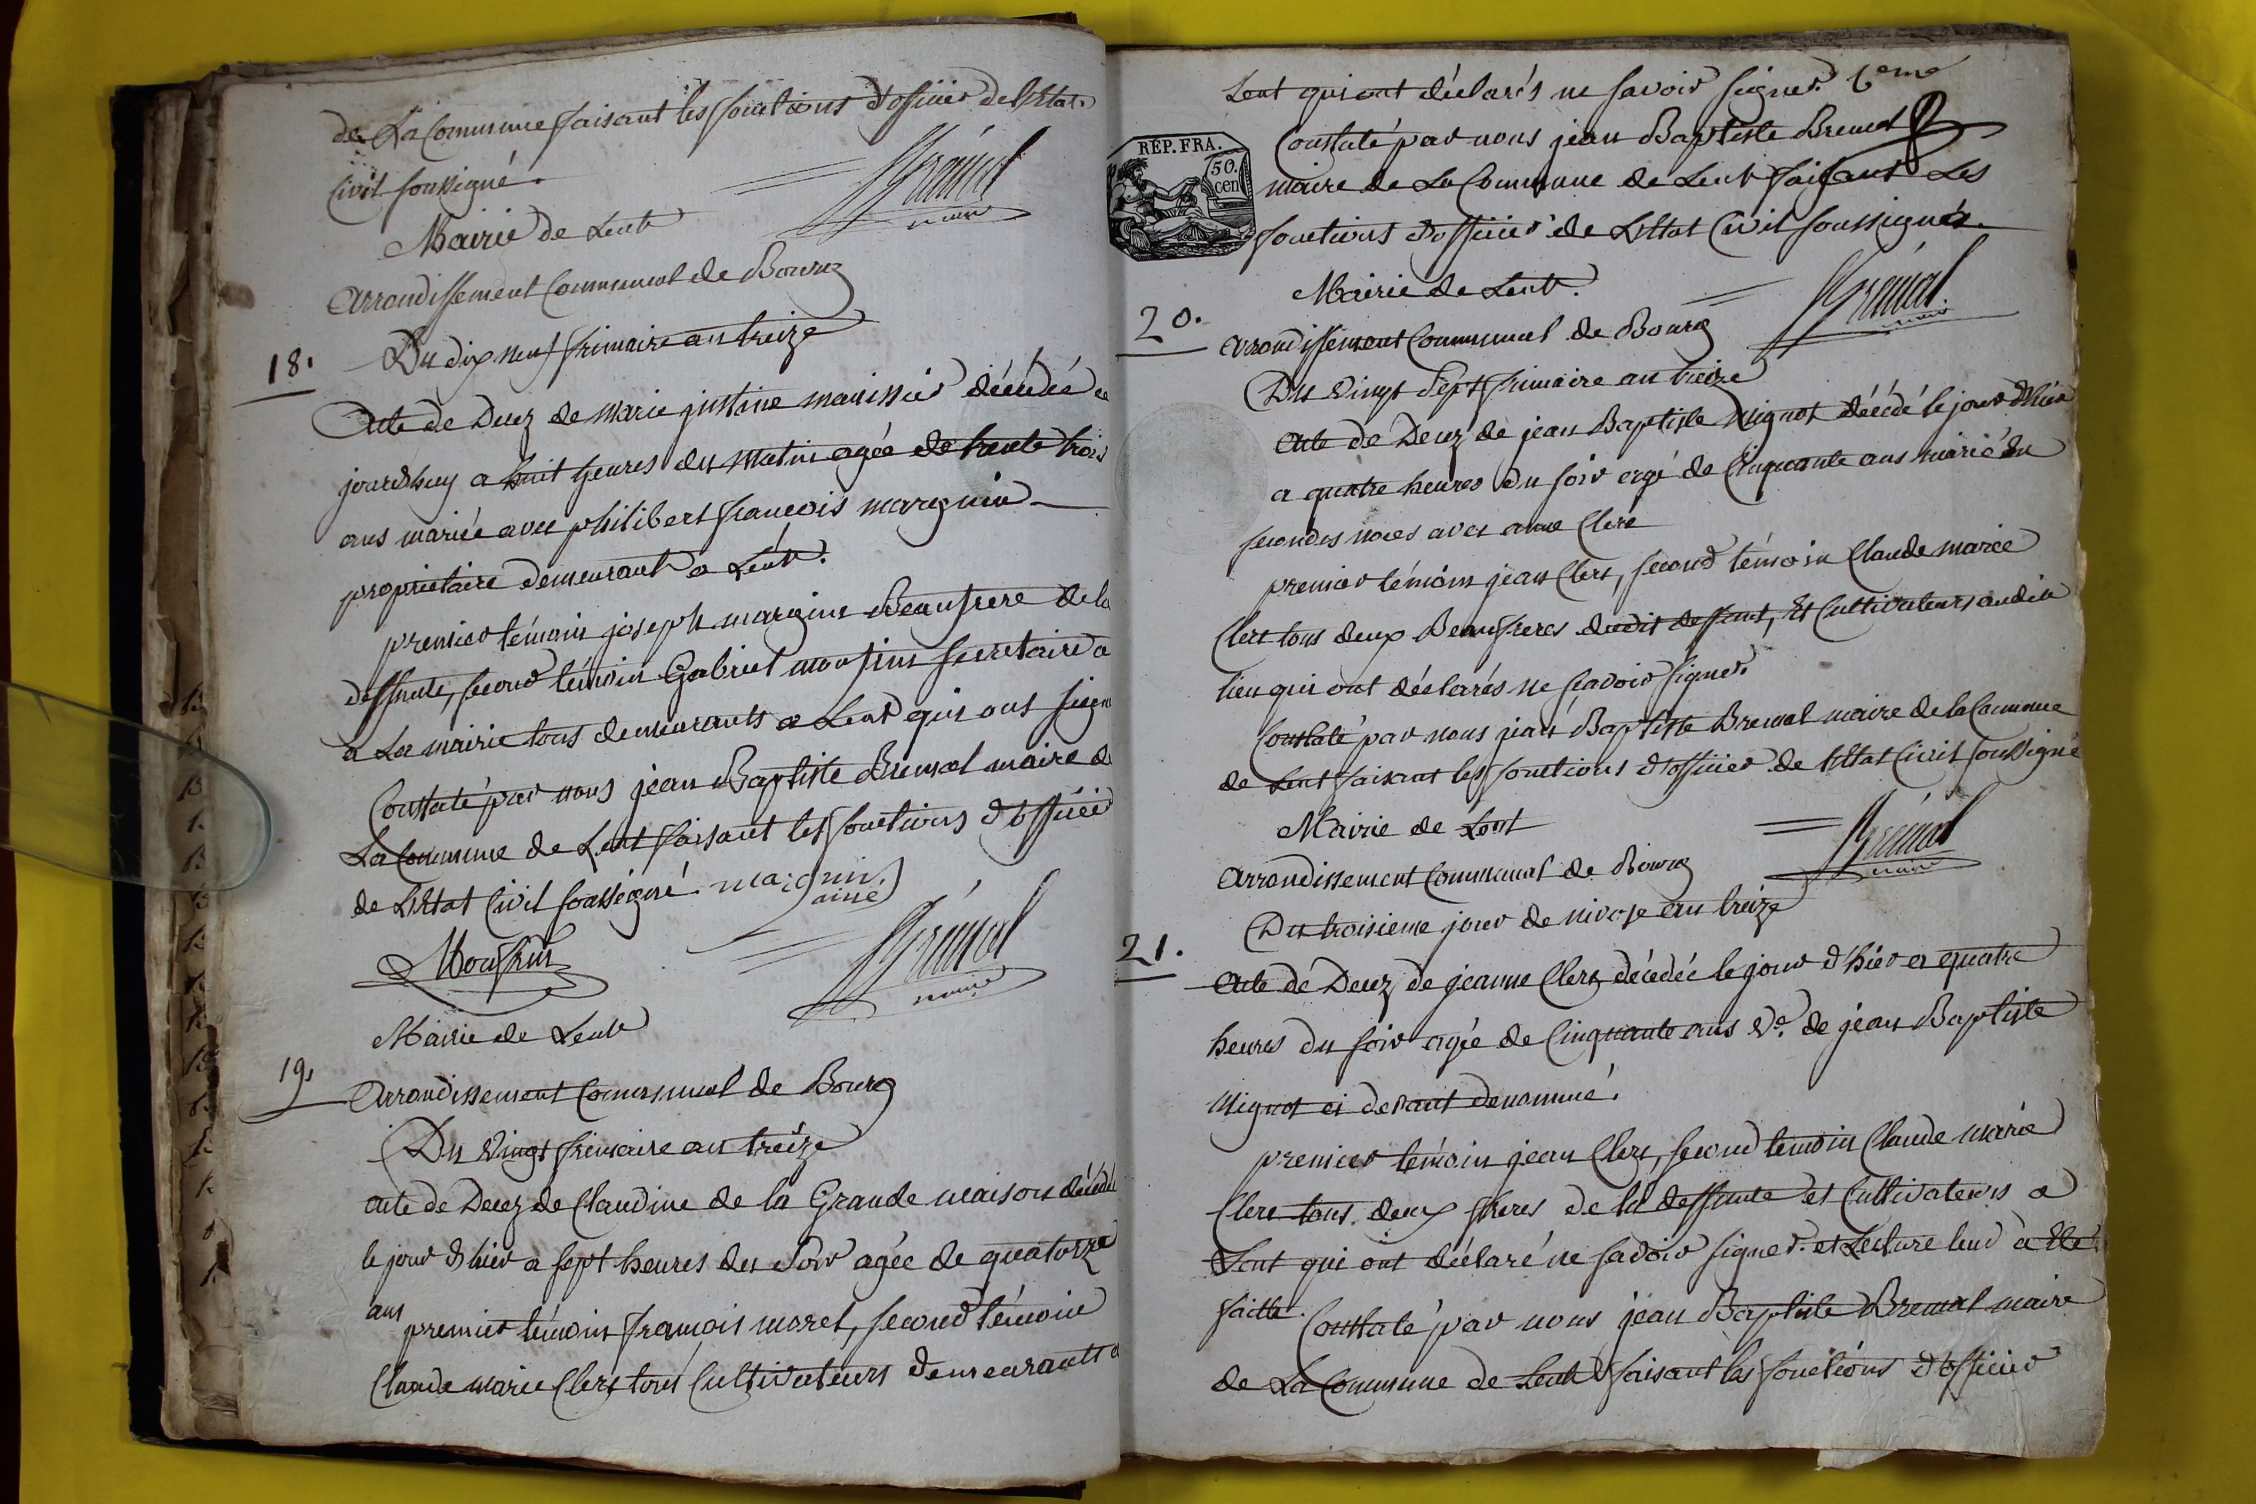 de La Commune faisant les fonctions d'officier de l'Etat
Civil soussigné.
Brémal
maire
Mairie de Lent
arrondissement Communal de Bourg
18. Du dix neuf frimaire an treize
Acte de Decez de Marie justine manissier décédée ce
jourdhuy a huit heures du matin agée de trente trois
ans mariée avec philibert francois marguin
proprietaire demeurant a Lent.
premier témoin joseph marguin Beaufrere de la
deffunte, second témoin Gabriel moufin secretaire a
a La mairie tous demeurants a Lent qui ont signé
Constaté par nous jean Baptiste Bremal maire de
La Commune de Lent faisant les fonctions d'officier
de L'Etat Civil soussigné. marguin
ainé
Brémal
maire
Mairie de Lent
19. Arrondissement Communal de Bourg
Du Vingt frimaire an treize
acte de Decez de Claudine de la Grande maison décédée
le jour d'hier a sept heures du soir agée de quatorze
ans
premier témoin francois moret, second témoin
Claude marie Clerc tous Cultivateurs demeurants a
Lent qui ont déclarés ne savoir signer.
REP. FRA.
50.
cen
Constaté par nous jean Baptiste Bremal
maire de La Commune de Lent faisant Les
fonctions d'officier de L'Etat Civil soussigné.
Mairie de Lent.
Brémal
maire
20. arrondissement Communal de Bourg
Du Vingt Sept frimaire an treize
Acte de Decez de jean Baptiste Mignot décédé le jour d'hier
a quatre heures du soir agé de Cinquante ans marié en
secondes noces avec anne Clerc
premier témoin jean Clerc, second témoin Claude marie
Clerc tous deux Beaufreres dudit deffunt, et Cultivateurs audit
lieu qui ont déclarés ne scavoir signer.
Constaté par nous jean Baptiste Bremal maire de la Commune
de Lent faisant les fonctions d'officier de l'Etat Civil soussigné
Mairie de Lent
Brémal
maire
arrondissement Communal de Bourg
Du troisieme jour de nivose an treize
21. Acte de Decez de jeanne Clerc décedée le jour d'hier a quatre
heures du soir agée de Cinquante ans Ve. de jean Baptiste
Mignot ci devant denommé.
premier témoin jean Clerc, second temoin Claude marie
Clerc tous deux freres de la deffunte et Cultivateurs a
Lent qui ont déclaré ne savoir signer. et Lecture leur à Eté
faitte.
Constaté par nous jean Baptiste Bremal maire
de La Commune de Lent faisant les fonctions d'officier